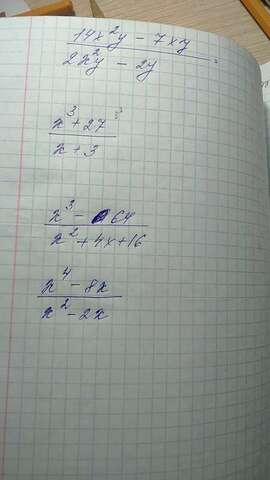 14x²y - 7xy
2x²y - 2y
x³ + 27
x + 3
x³ - 64
x² + 4x + 16
x⁴ - 8x
x² - 2x